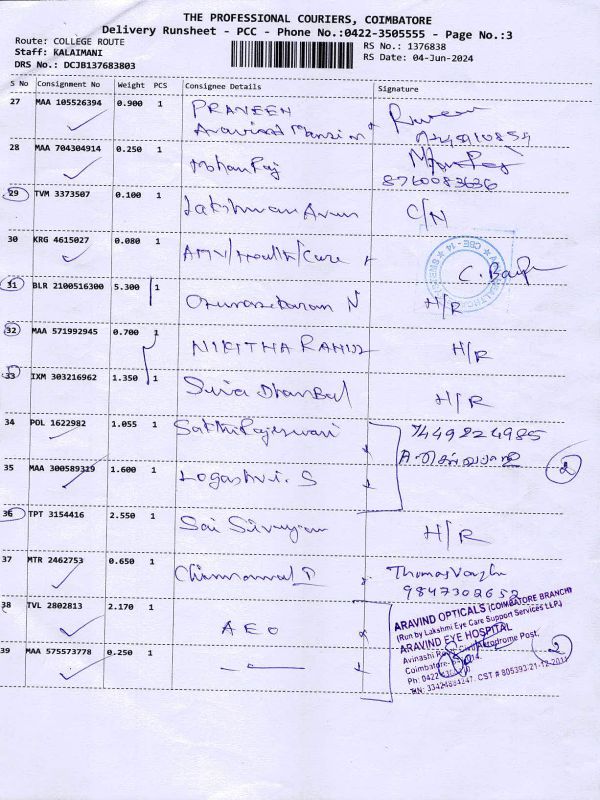 THE PROFESSIONAL COURIERS, COIMBATORE
Delivery Runsheet - PCC - Phone No.:0422-3505555 - Page No.:3
Route: COLLEGE ROUTE
Staff: KALAIMANI
DRS No.: DCJB137683803
RS No.: 1376838
RS Date: 04-Jun-2024
S No Consignment No Weight PCS Consignee Details Signature
27 MAA 105526394 0.900 1 PRAVEEN
Aravind Mansion
28 MAA 704304914 0.250 1 MohanRaj
8760083636
29 TVM 3373507 0.100 1 Lakshman Arun C/N
30 KRG 4615027 0.080 1 AMV/Health/Care
CBE - 14
31 BLR 2100516300 5.300 1 H/R
32 MAA 571992945 0.700 1 NIKITHA H/R
33 IXM 303216962 1.350 1 Siva H/R
34 POL 1622982 1.055 1 SakthiRajeswari 7449824985
35 MAA 300589319 1.600 1 S 2
36 TPT 3154416 2.550 1 Sai H/R
37 MTR 2462753 0.650 1 Thomas
9847302652
38 TVL 2802813 2.170 1 AEO
39 MAA 575573778 0.250 1 2
ARAVIND OPTICALS (COIMBATORE BRANCH)
(Run by Lakshmi Eye Care Support Services LLP.)
ARAVIND EYE HOSPITAL
Avinashi Road, Civil Aerodrome Post,
Coimbatore
Ph: 0422
CST # 805393/21-12-2011